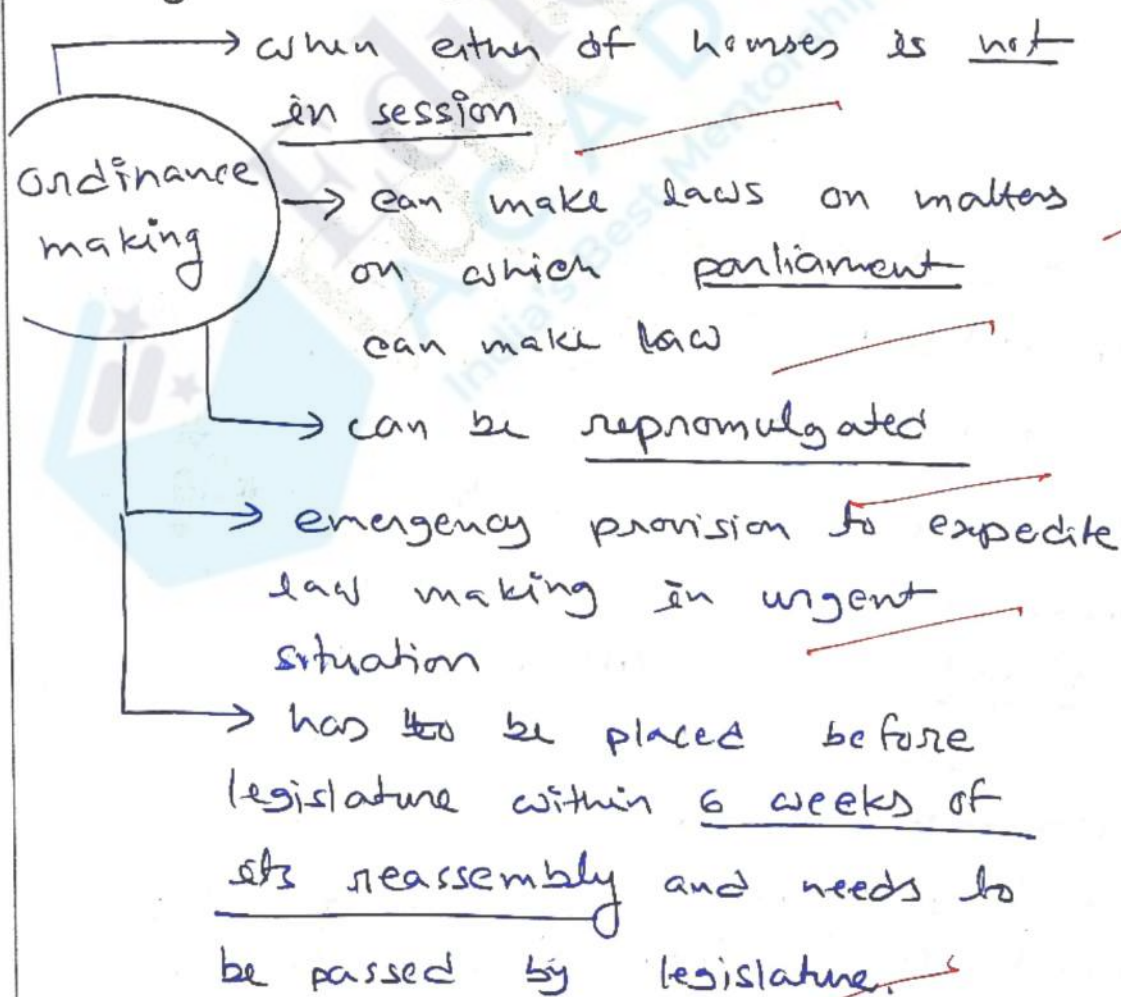 when either of houses is not
in session
ordinance
making
can make laws on matters
on which parliament
can make law
can be repromulgated
emergency provision to expedite
law making in urgent
situation
has to be placed before
legislature within 6 weeks of
its reassembly and needs to
be passed by legislature.
India's Best Mentorship